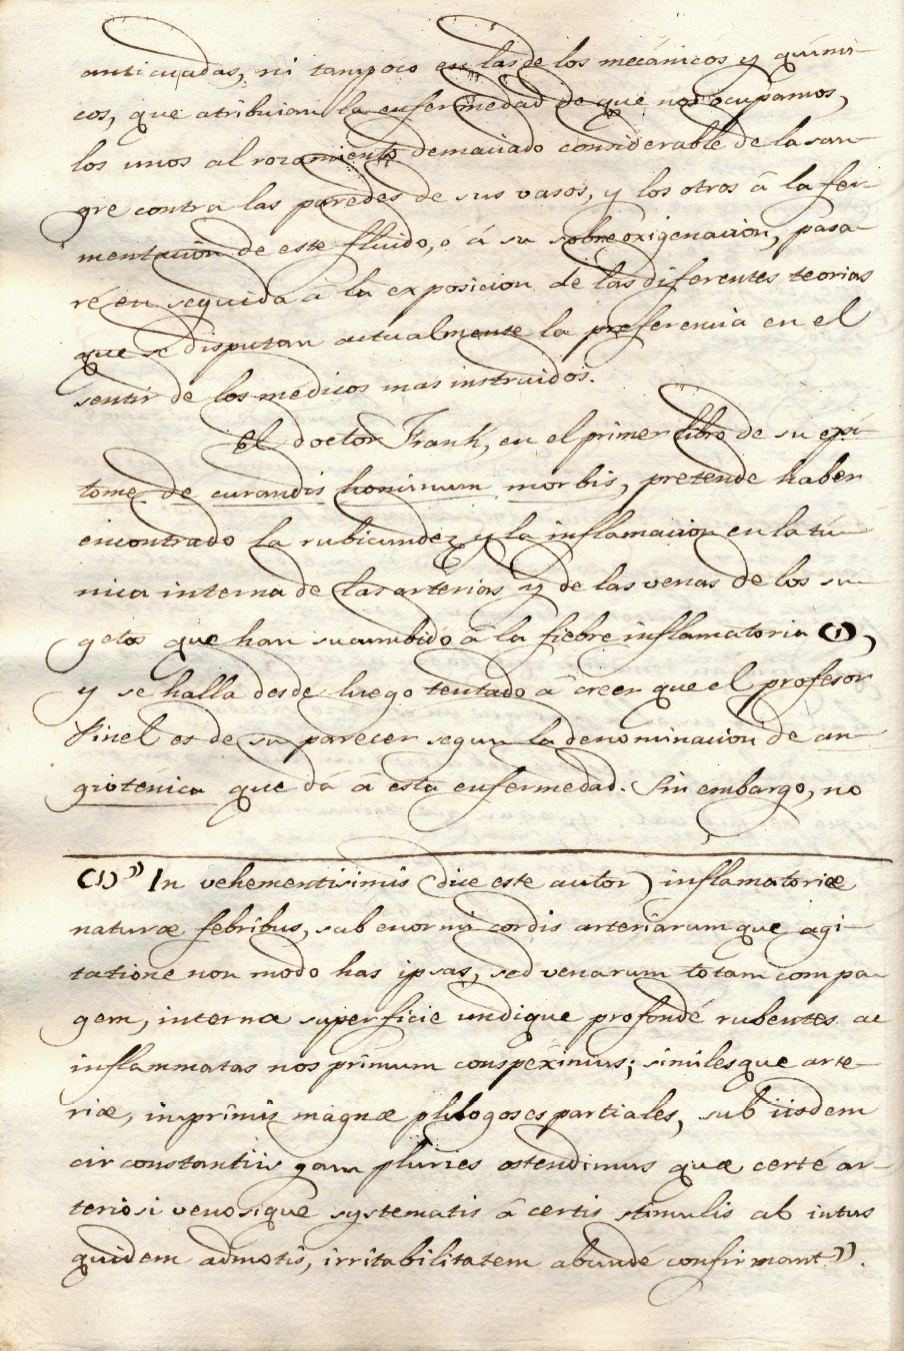 anticuadas, ni tampoco en las de los mecánicos y quími-
cos, que atribuian la enfermedad de que nos ocupamos,
los unos al rozamiento demaciado considerable de la san-
gre contra las paredes de sus vasos, y los otros â la fer-
mentacion de este fluido, ó á su sobreoxigenacion, pasa-
ré en seguida â la exposicion de las diferentes teorias
que se disputan actualmente la preferencia en el
sentir de los médicos mas instruidos.
El doctor Frank, en el primer libro de su epi-
tome de curandis hominum morbis, pretende haber
encontrado la rubicundez y la inflamacion en la tú-
nica interna de las arterias y de las venas de los su-
getos que han sucumbido â la fiebre inflamatoria (1),
y se halla desde luego tentado â creer que el profesor
Pinel es de su parecer segun la denominacion de an-
gioténica que dá â esta enfermedad. Sin embargo, no
(1) " In vehementisimis (dice este autor) inflamatoriæ
naturæ febribus, sub enormi cordis arteriarumque agi-
tatione non modo has ipsas, sed venarum totam compa-
gem, interna superficie undique profondé rubentes ac
inflammatas nos primum conspeximus; similesque arte-
riæ, inprîmis magnæ phlogoses partiales, sub iisdem
circonstantiis gam pluries ostendimus quæ certé ar-
teriosi venosique systematis â certis stimulis ab intus
quidem admotis, irritabilitatem abunde confirmant ".